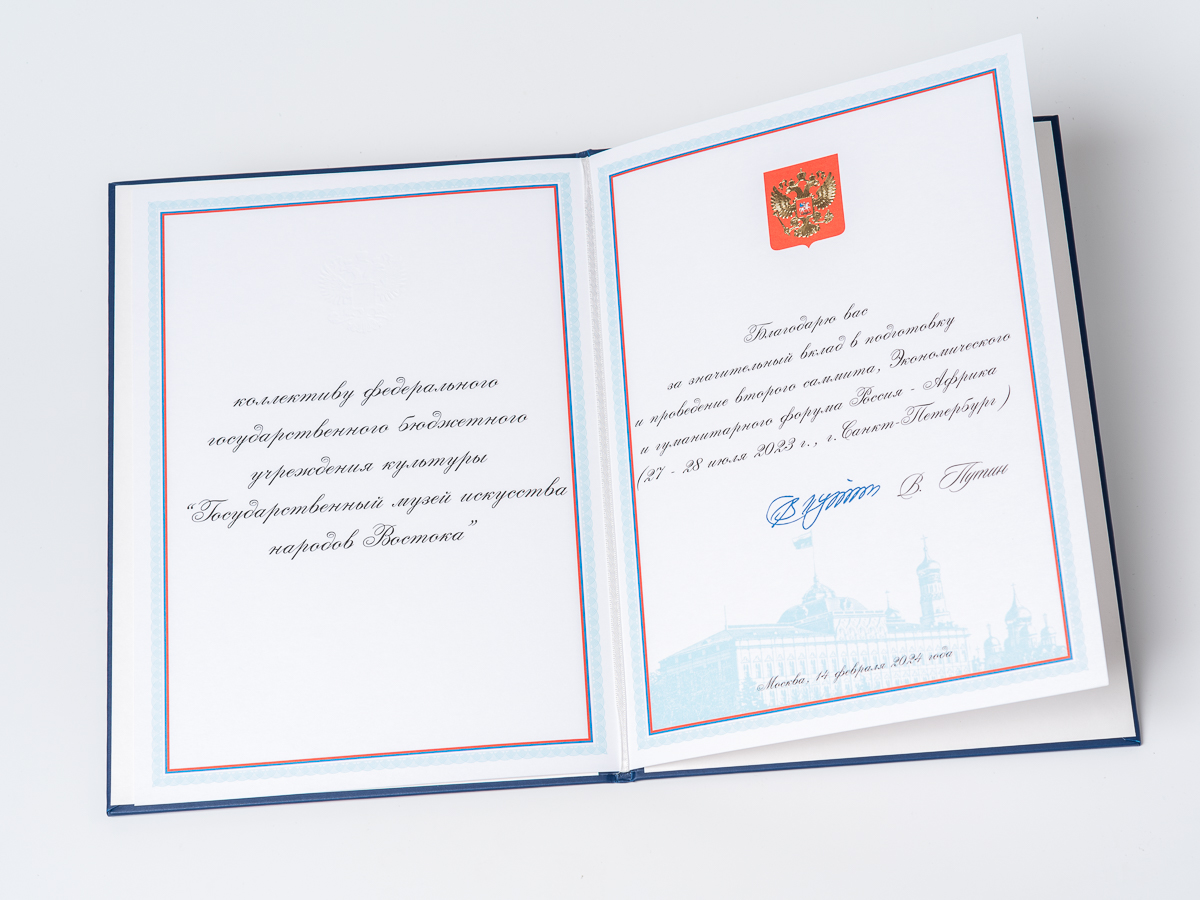 коллективу федерального
государственного бюджетного
учреждения культуры
“Государственный музей искусства
народов Востока”
Благодарю вас
за значительный вклад в подготовку
и проведение второго саммита, Экономического
и гуманитарного форума Россия - Африка
(27 - 28 июля 2023 г., г.Санкт-Петербург)
В. Путин
Москва, 14 февраля 2024 года